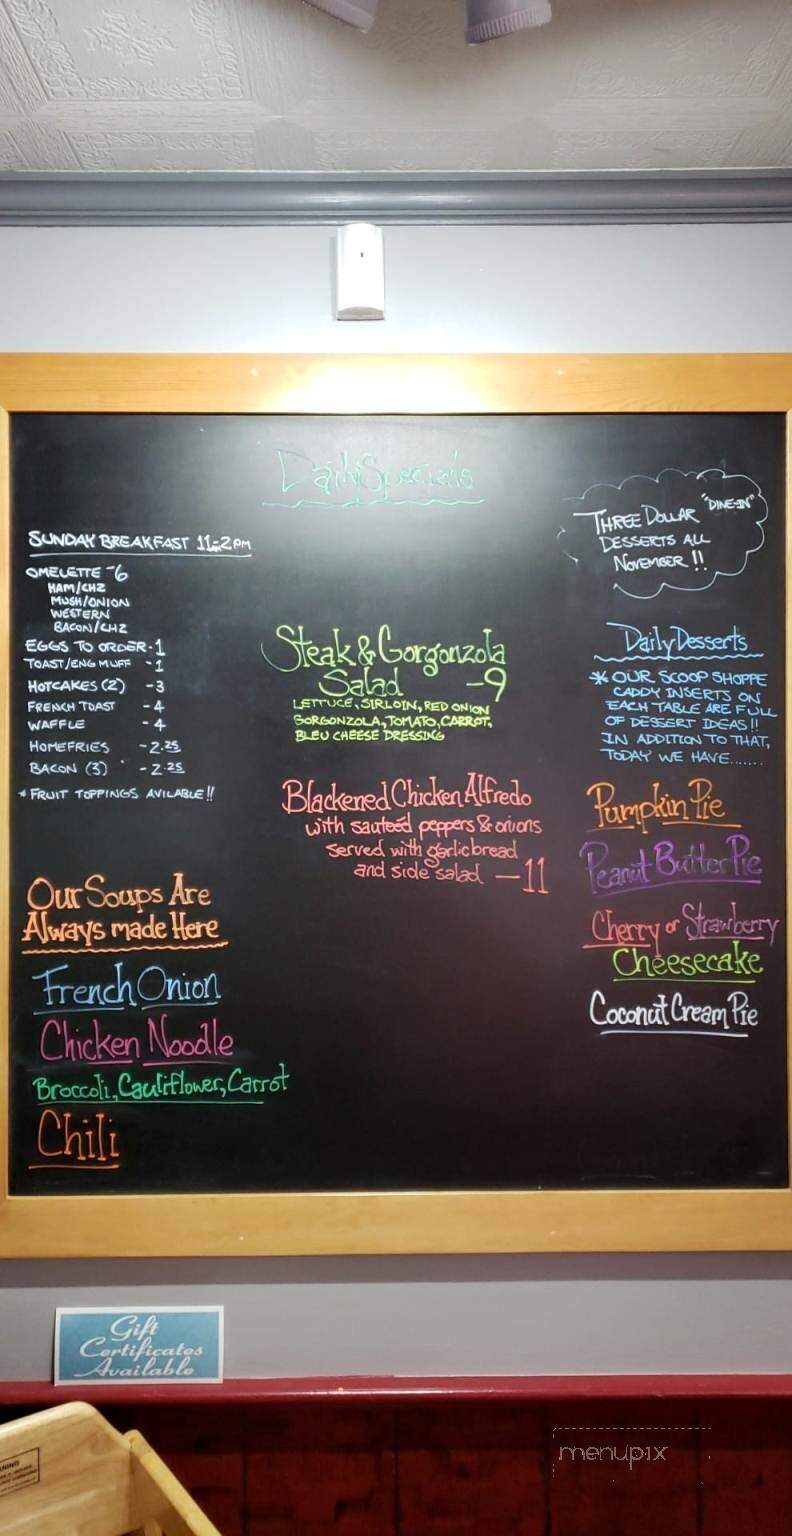 Daily Specials
SUNDAY BREAKFAST 11-2PM
OMELETTE -6
HAM/CHZ
MUSH/ONION
WESTERN
BACON/CHZ
EGGS TO ORDER -1
TOAST/ENG MUFF -1
HOTCAKES (2) -3
FRENCH TOAST -4
WAFFLE -4
HOMEFRIES -2.25
BACON (3) -2.25
* FRUIT TOPPINGS AVILABLE!!
Our Soups Are
Always made Here
French Onion
Chicken Noodle
Broccoli, Cauliflower, Carrot
Chili
Steak & Gorgonzola
Salad -9
LETTUCE, SIRLOIN, RED ONION
GORGONZOLA, TOMATO, CARROT,
BLEU CHEESE DRESSING
Blackened Chicken Alfredo
with sauteed peppers & onions
served with garlic bread
and side salad -11
THREE DOLLAR "DINE-IN"
DESSERTS ALL
NOVEMBER!!
Daily Desserts
* OUR SCOOP SHOPPE
CADDY INSERTS ON
EACH TABLE ARE FULL
OF DESSERT IDEAS!!
IN ADDITION TO THAT,
TODAY WE HAVE.......
Pumpkin Pie
Peanut Butter Pie
Cherry or Strawberry
Cheesecake
Coconut Cream Pie
Gift
Certificates
Available
menupix